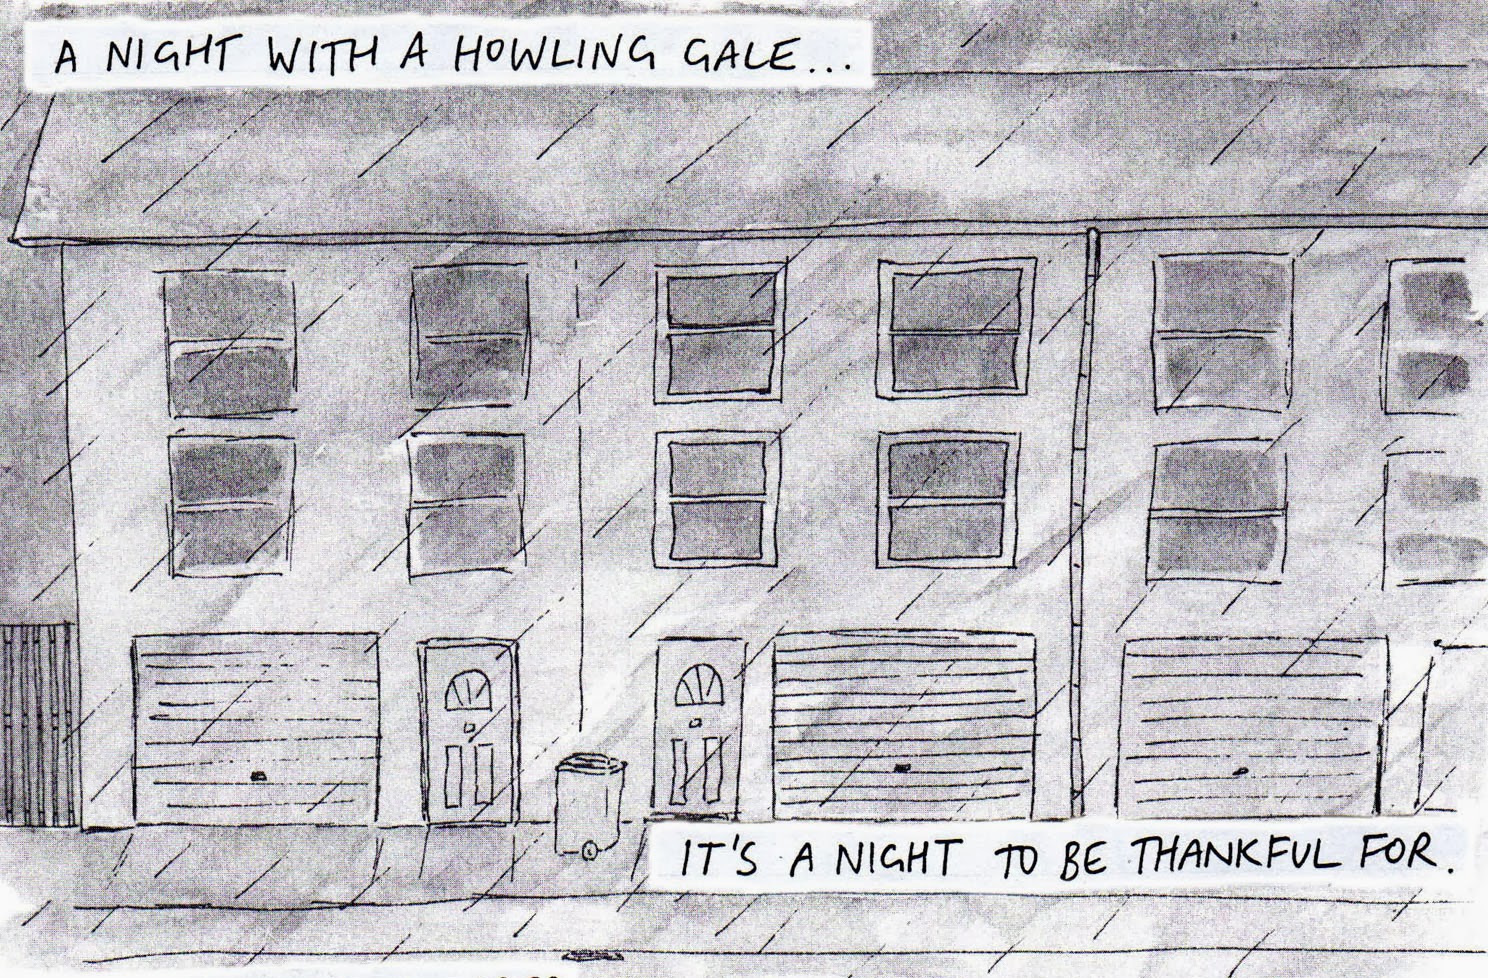 A NIGHT WITH A HOWLING GALE...
IT'S A NIGHT TO BE THANKFUL FOR.